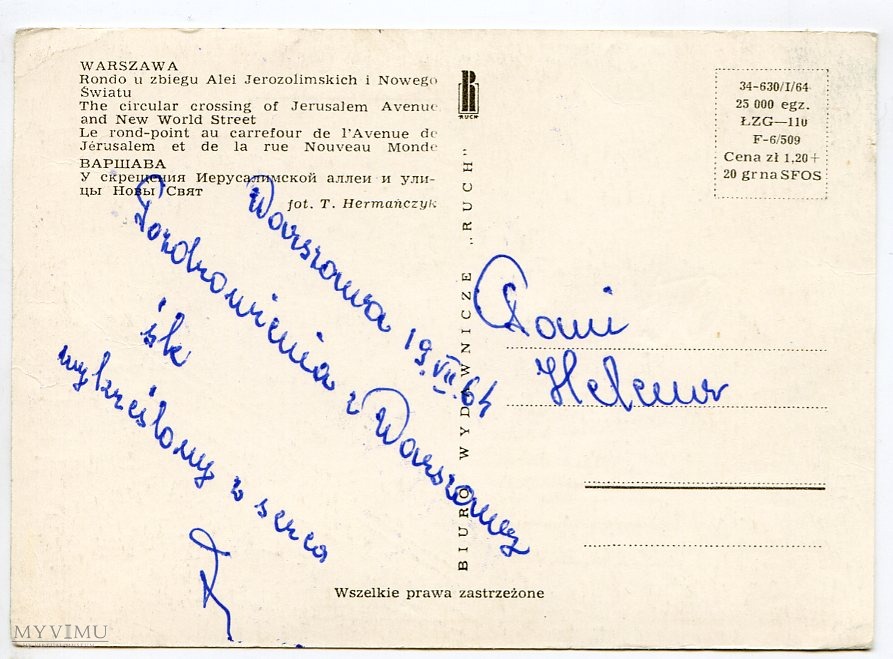 WARSZAWA
Rondo u zbiegu Alei Jerozolimskich i Nowego
Światu
The circular crossing of Jerusalem Avenue
and New World Street
Le rond-point au carrefour de l'Avenue de
Jérusalem et de la rue Nouveau Monde
ВАРШАВА
У скрещения Иерусалимской аллеи и ули-
цы Новы Свят
fot. T. Hermańczyk
Warszawa 19.VII.64
Pozdrowienia z Warszawy
śle
wykreślony z serca
BIURO WYDAWNICZE „RUCH"
R
RUCH
34-630/I/64
25 000 egz.
ŁZG—110
F-6/509
Cena zł 1,20+
20 gr na SFOS
Pani
Wszelkie prawa zastrzeżone
MYVIMU